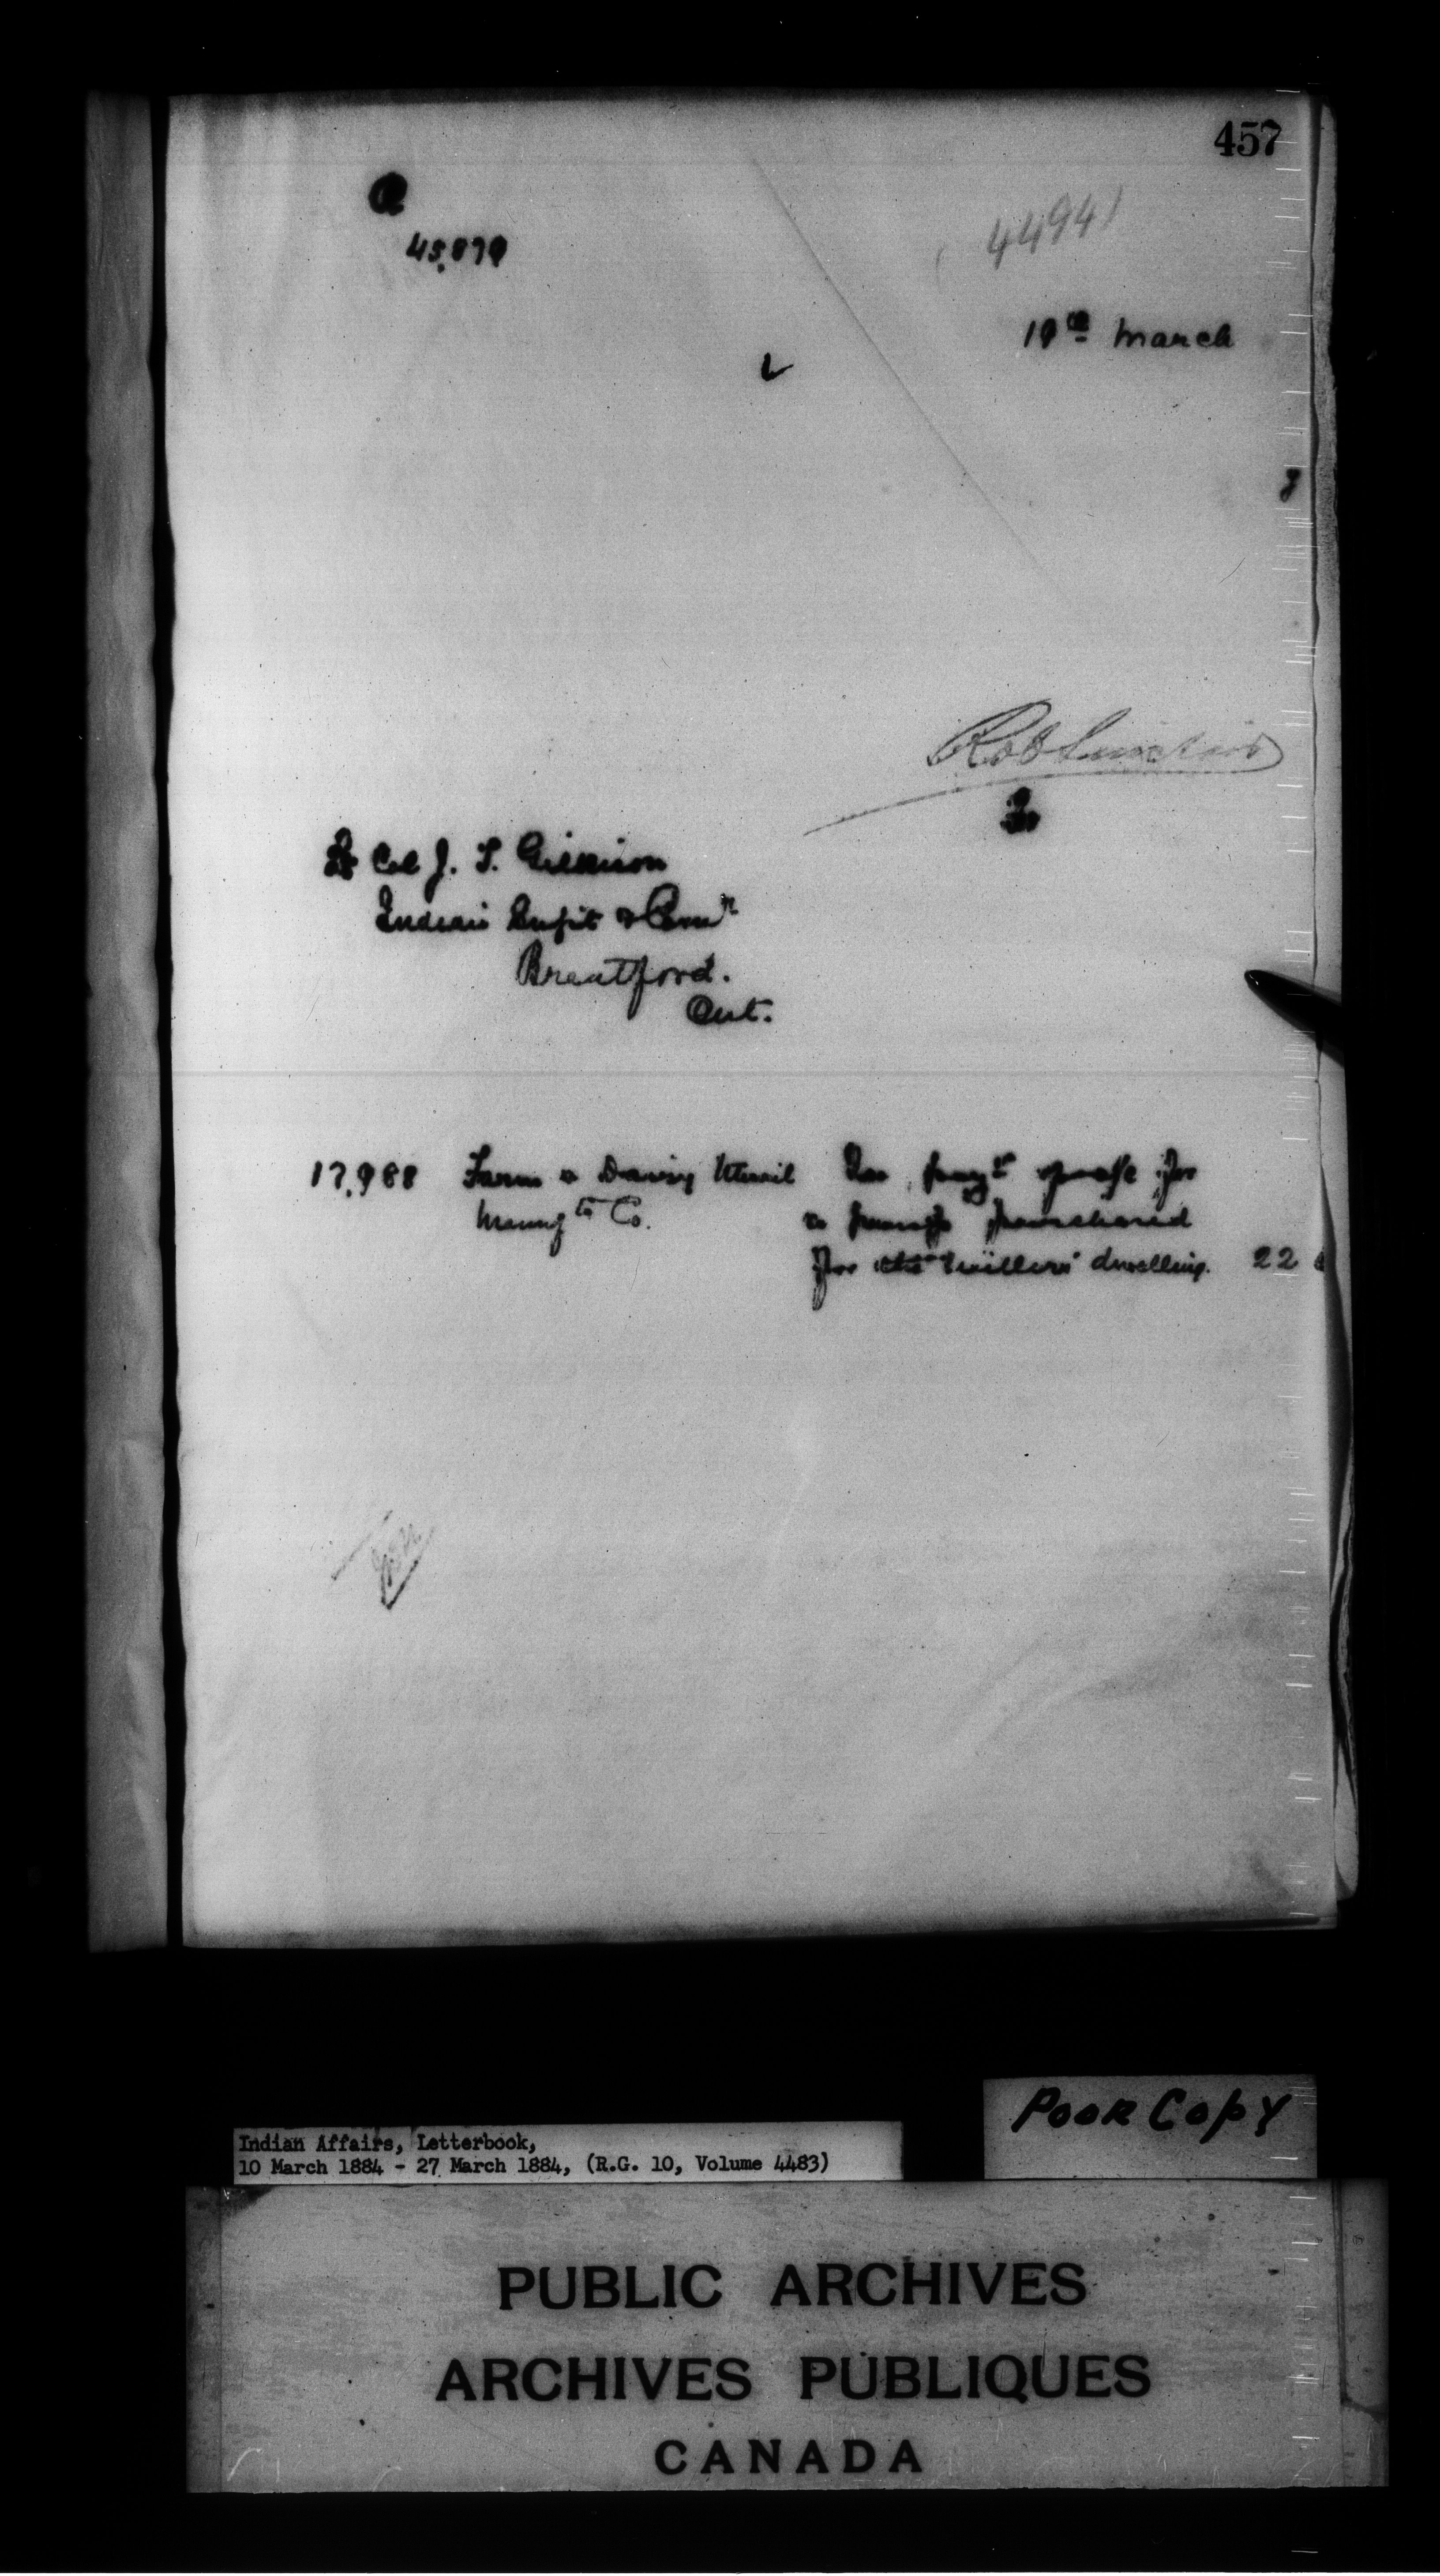 457
44941
45,879
19th March
Rob Sinclair
Lt Col J. T. Gilkison
Indian Supt & Comr
Brantford.
Ont.
17,988 Farm & Dairy Utensil In paymt of a/c for
Manufg Co. a pump purchased
for the Miller's dwelling. 22
Poor Copy
Indian Affairs, Letterbook,
10 March 1884 - 27 March 1884, (R.G. 10, Volume 4483)
PUBLIC ARCHIVES
ARCHIVES PUBLIQUES
CANADA